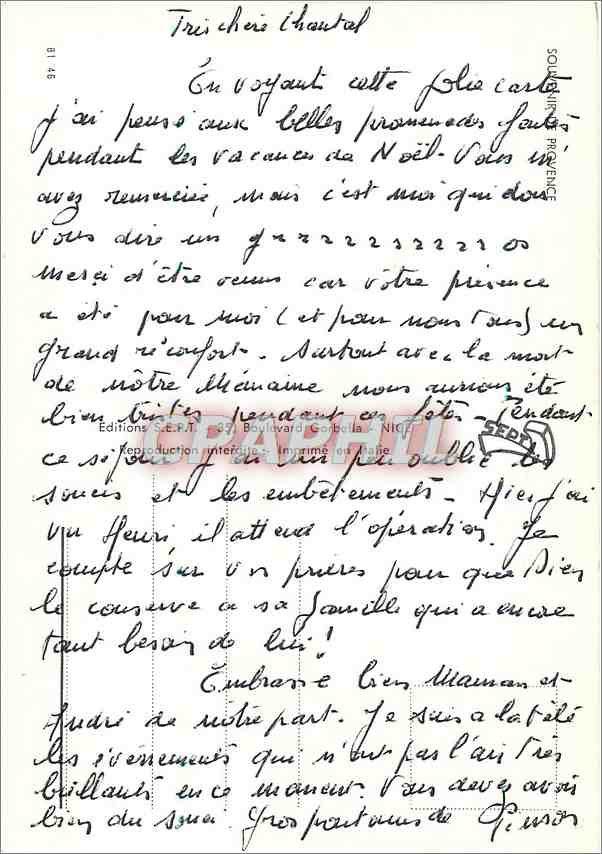 Très chère Chantal
En voyant cette jolie carte
j'ai pensé aux belles promenades faites
pendant les vacances de Noël. Vous m'
avez remerciée, mais c'est moi qui dois
vous dire un grrrrrrrrrros
merci d'être venus car vôtre présence
a été pour moi (et pour nous tous) un
grand réconfort. Surtout avec la mort
de nôtre Mémaine nous aurions été
bien tristes pendant ces fêtes. Pendant
ce séjour j'ai un peu oublié les
soucis et les embêtements. Hier j'ai
vu Henri il attend l'opération. Je
compte sur vos prières pour que Dieu
le conserve à sa famille qui a encore
tant besoin de lui!
Embrasse bien Maman et
André de nôtre part. Je suis à la télé
les évènements qui n'ont pas l'air très
brillants en ce moment. Vous devez avoir
bien du souci. Gros pontous de
81 46
SOUVENIR DE PROVENCE
Editions S.E.P.T. - 35, Boulevard Gorbella - NICE
Reproduction interdite - Imprimé en Italie
SEPT
CPAPHIL